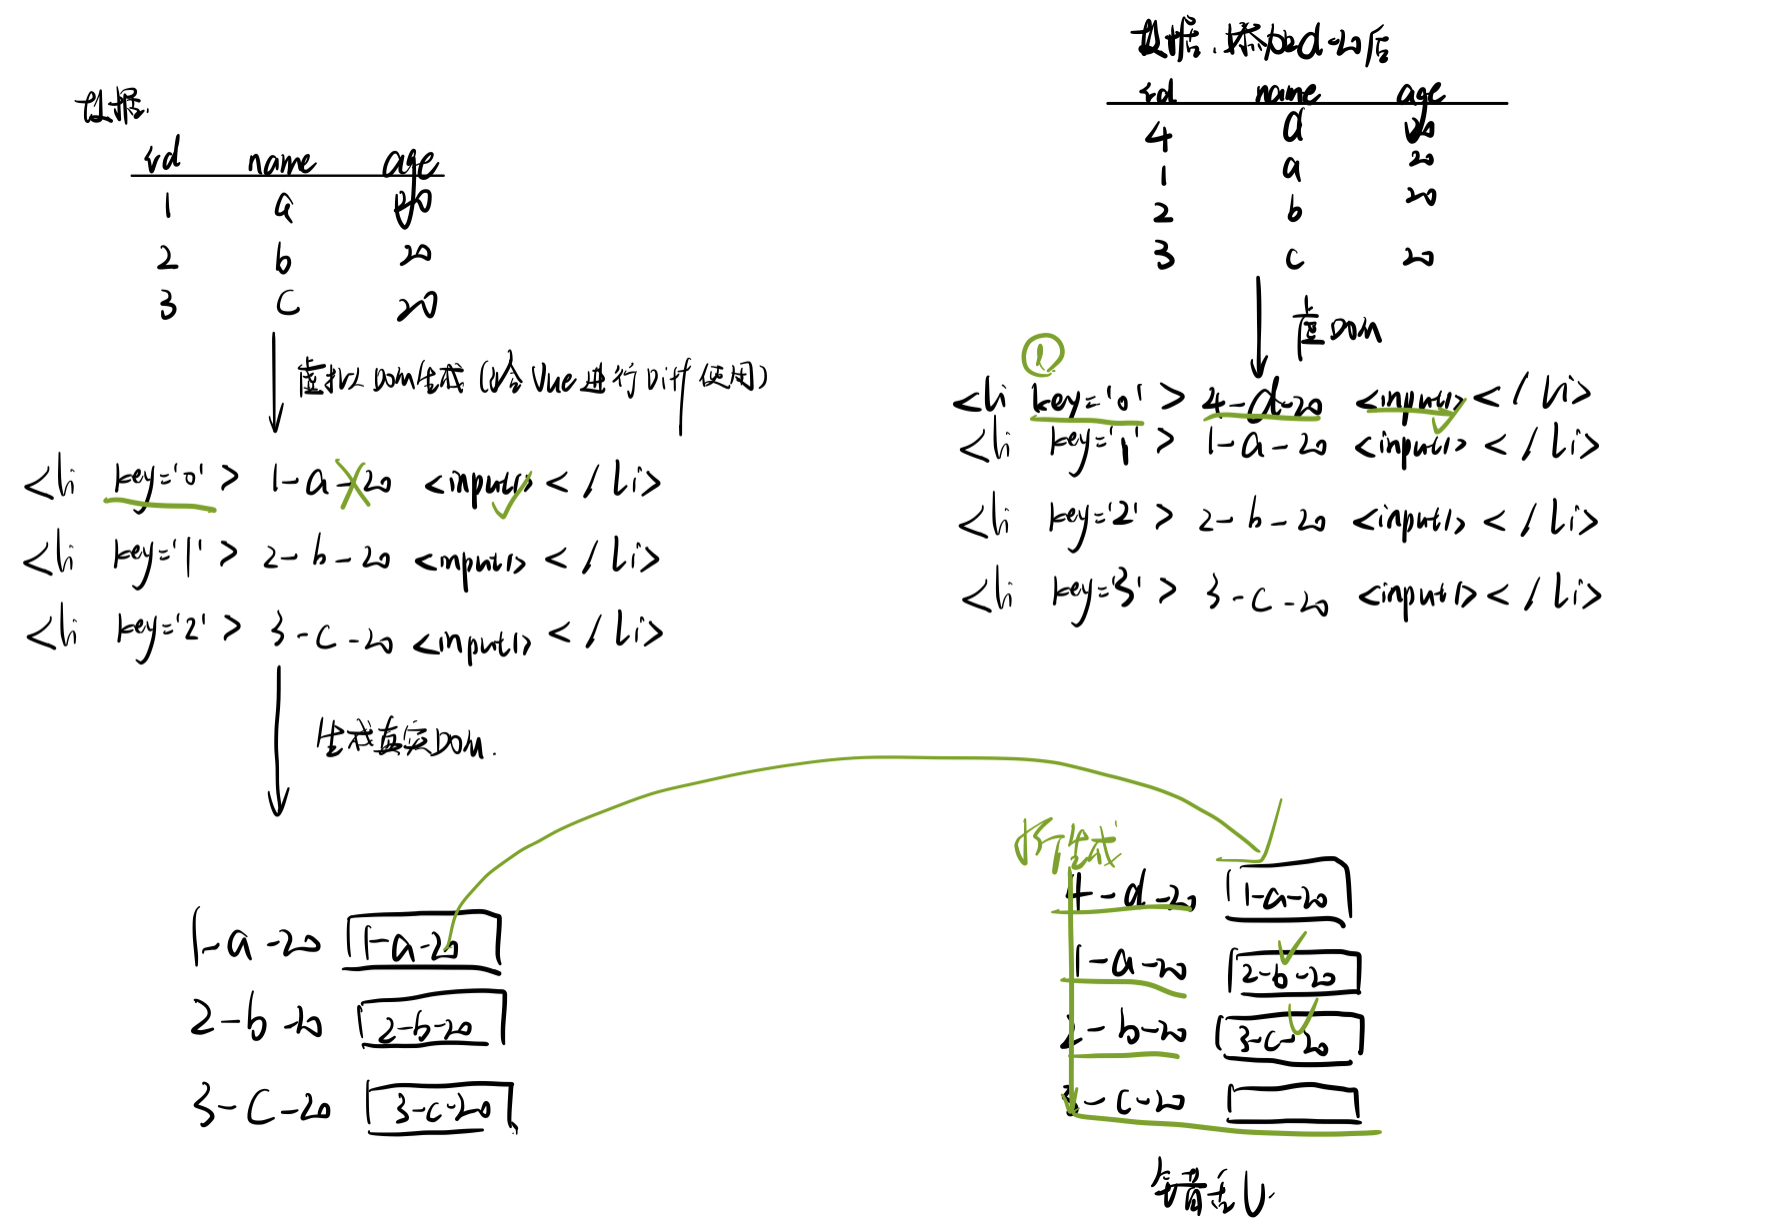 数据.
id name age
1 a 20
2 b 20
3 c 20
虚拟Dom生成(给Vue进行Diff使用)
<li key='0'> 1-a-20 <input/> </li>
<li key='1'> 2-b-20 <input/> </li>
<li key='2'> 3-c-20 <input/> </li>
生成真实Dom.
1-a-20 1-a-20
2-b-20 2-b-20
3-c-20 3-c-20
数据.添加d-20后
id name age
4 d 20
1 a 20
2 b 20
3 c 20
虚Dom
①
<li key='0'> 4-d-20 <input/> </li>
<li key='1'> 1-a-20 <input/> </li>
<li key='2'> 2-b-20 <input/> </li>
<li key='3'> 3-c-20 <input/> </li>
新生成
4-d-20 1-a-20
1-a-20 2-b-20
2-b-20 3-c-20
3-c-20
错乱.